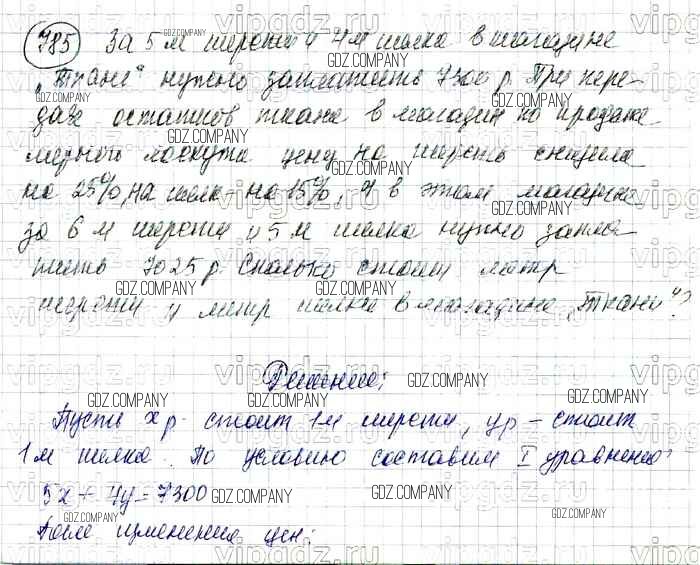 785 За 5 м шерсти и 4 м шелка в магазине
„Ткани“ нужно заплатить 7300 р. При пере-
даче остатков ткани в магазин по продаже
мерного лоскута цену на шерсть снизили
на 25%, на шелк - на 15%, и в этом магазине
за 6 м шерсти и 5 м шелка нужно запла-
тить 7025 р. Сколько стоит метр
шерсти и метр шелка в магазине „Ткани“?
Решение:
Пусть x р - стоит 1 м шерсти, y р - стоит
1 м шелка. По условию составим I уравнение:
5x + 4y = 7300
После изменения цен:
GDZ.COMPANY
vipgdz.ru